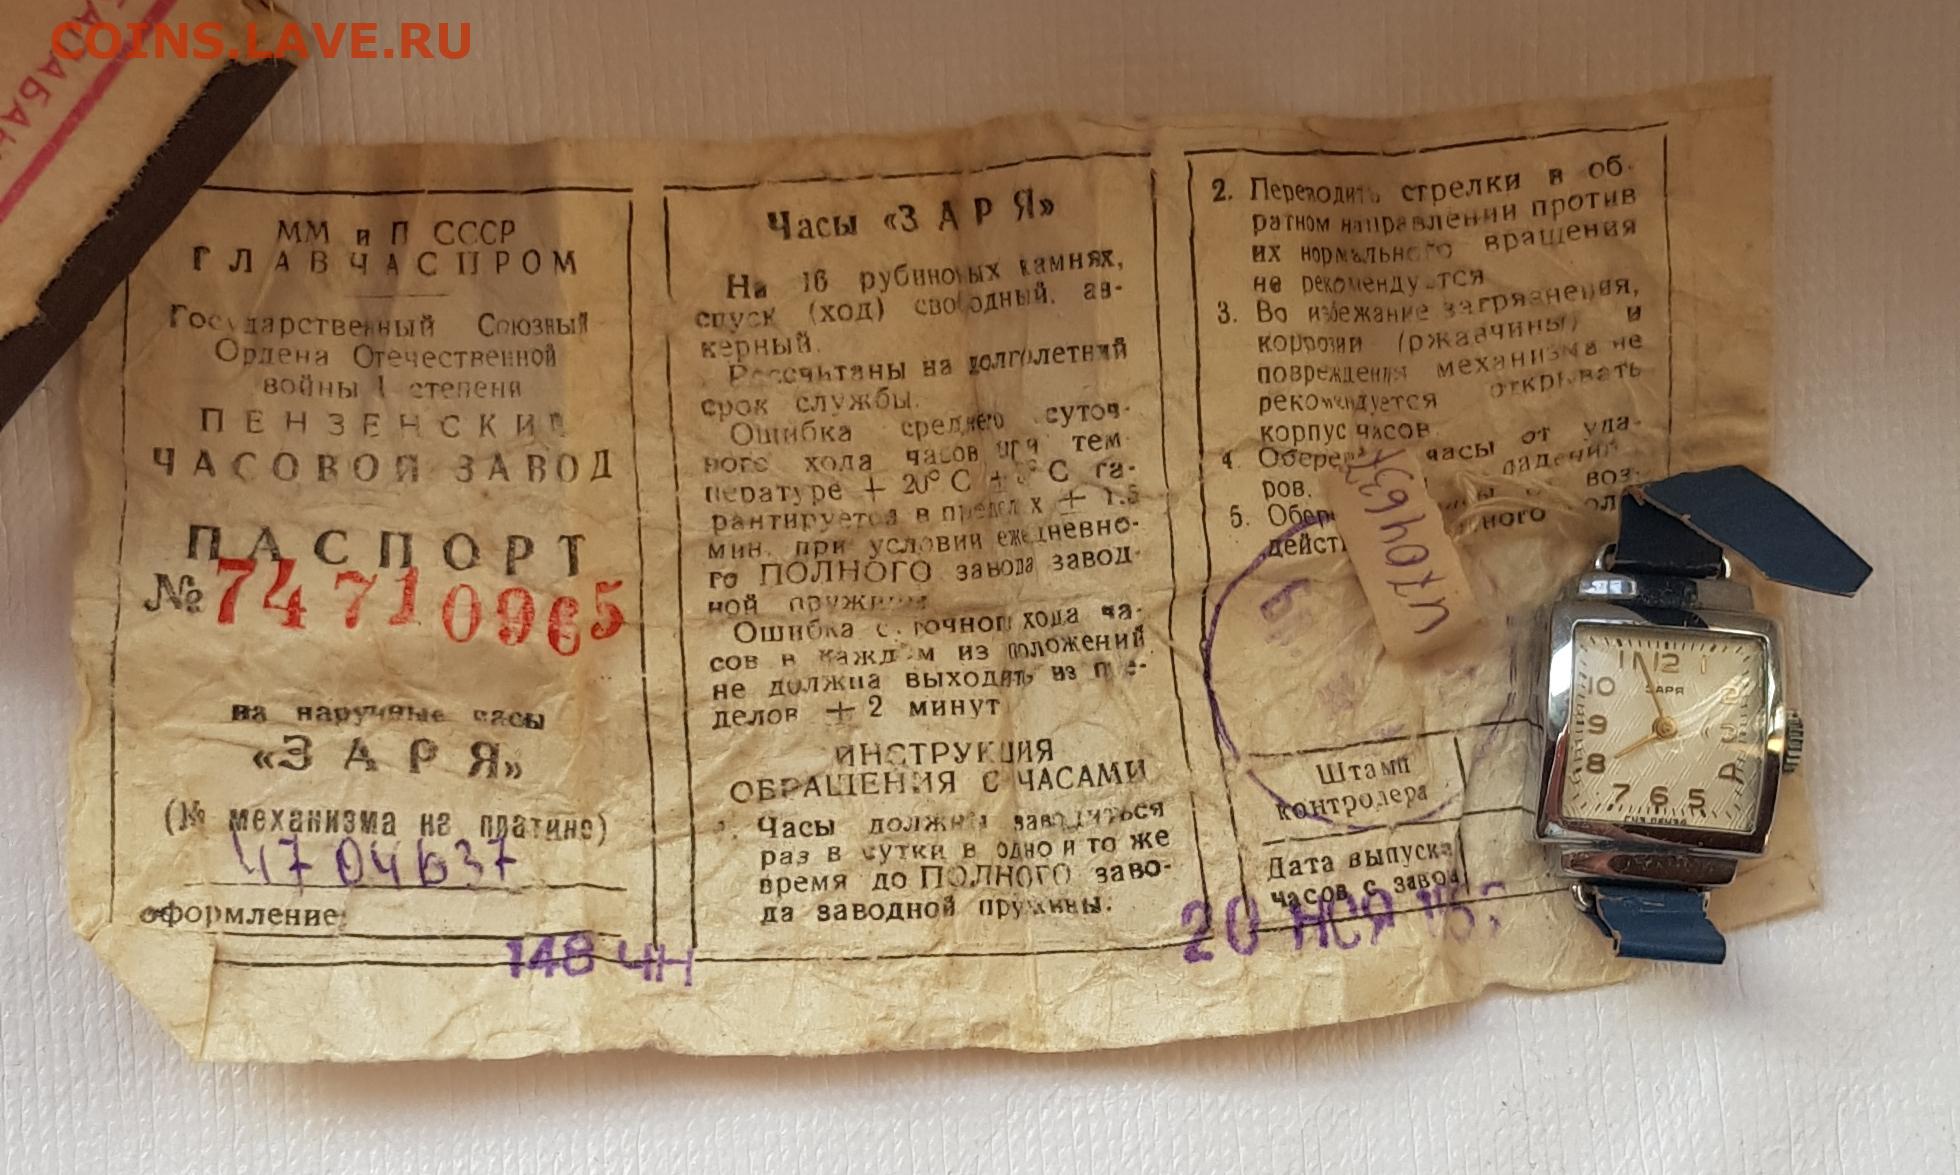 COINS.LAVE.RU
ММ и П СССР
ГЛАВЧАСПРОМ
Государственный Союзный
Ордена Отечественной
войны I степени
ПЕНЗЕНСКИЙ
ЧАСОВОЙ ЗАВОД
ПАСПОРТ
№ 74710965
на наручные часы
«ЗАРЯ»
(№ механизма на платине)
4704637
оформление
148 ЧН
Часы «ЗАРЯ»
На 16 рубиновых камнях,
спуск (ход) свободный, ан-
керный.
Рассчитаны на долголетний
срок службы.
Ошибка среднего суточ-
ного хода часов при тем
пературе + 20° С ± С га-
рантируется в пределах ± 1.5
мин. при условии ежедневно-
го ПОЛНОГО завода завод-
ной пружины
Ошибка суточного хода ча-
сов в каждом из положений
не должна выходить из пре-
делов ± 2 минут
ИНСТРУКЦИЯ
ОБРАЩЕНИЯ С ЧАСАМИ
Часы должны заводиться
раз в сутки в одно и то же
время до ПОЛНОГО заво-
да заводной пружины.
2. Переводить стрелки в об-
ратном направлении против
их нормального вращения
не рекомендуется
3. Во избежание загрязнения,
коррозии (ржавчины) и
повреждения механизма не
рекомендуется открывать
корпус часов
4. часы от уда-
ров, падений
5.
Штамп
контролера
Дата выпуска
часов с завода
20 НОЯ
4704637
12 1 2 3 4 5 6 7 8 9 10 11
ЗАРЯ